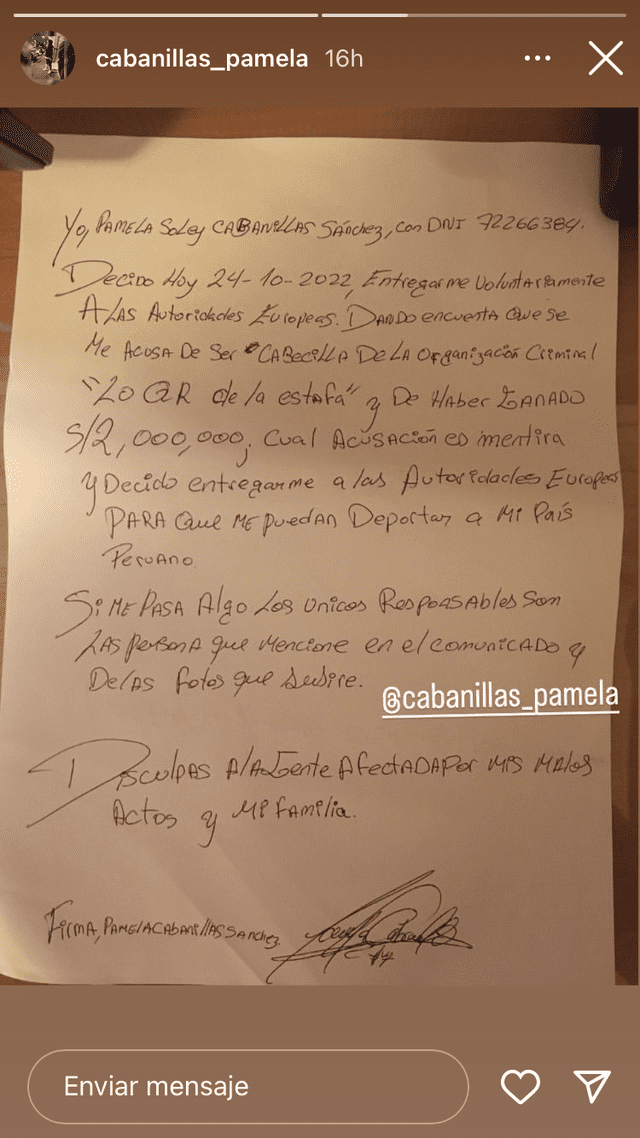 cabanillas_pamela 16h
Yo, PAMELA Soley CABANILLAS Sánchez, con DNI 72266384.
Decido Hoy 24-10-2022, Entregarme Voluntariamente
A LAS Autoridades Europeas. DANDO encuenta que se
Me ACUSA De SER "CABecilla De LA Organización Criminal
"LO QR de la estafa" y De Haber GANADO
S/2,000,000; Cual Acusación es mentira
y Decido entregarme a las Autoridades Europeas
PARA Que ME puedan Deportar a Mi País
Peruano.
Si ME PASA Algo Los Unicos Responsables Son
LAS persona que mencione en el comunicado y
De las fotos que subire.
@cabanillas_pamela
Disculpas A la Gente Afectada Por mis Malos
Actos y Mi familia.
Firma, Pamela Cabanillas Sanchez.
Enviar mensaje